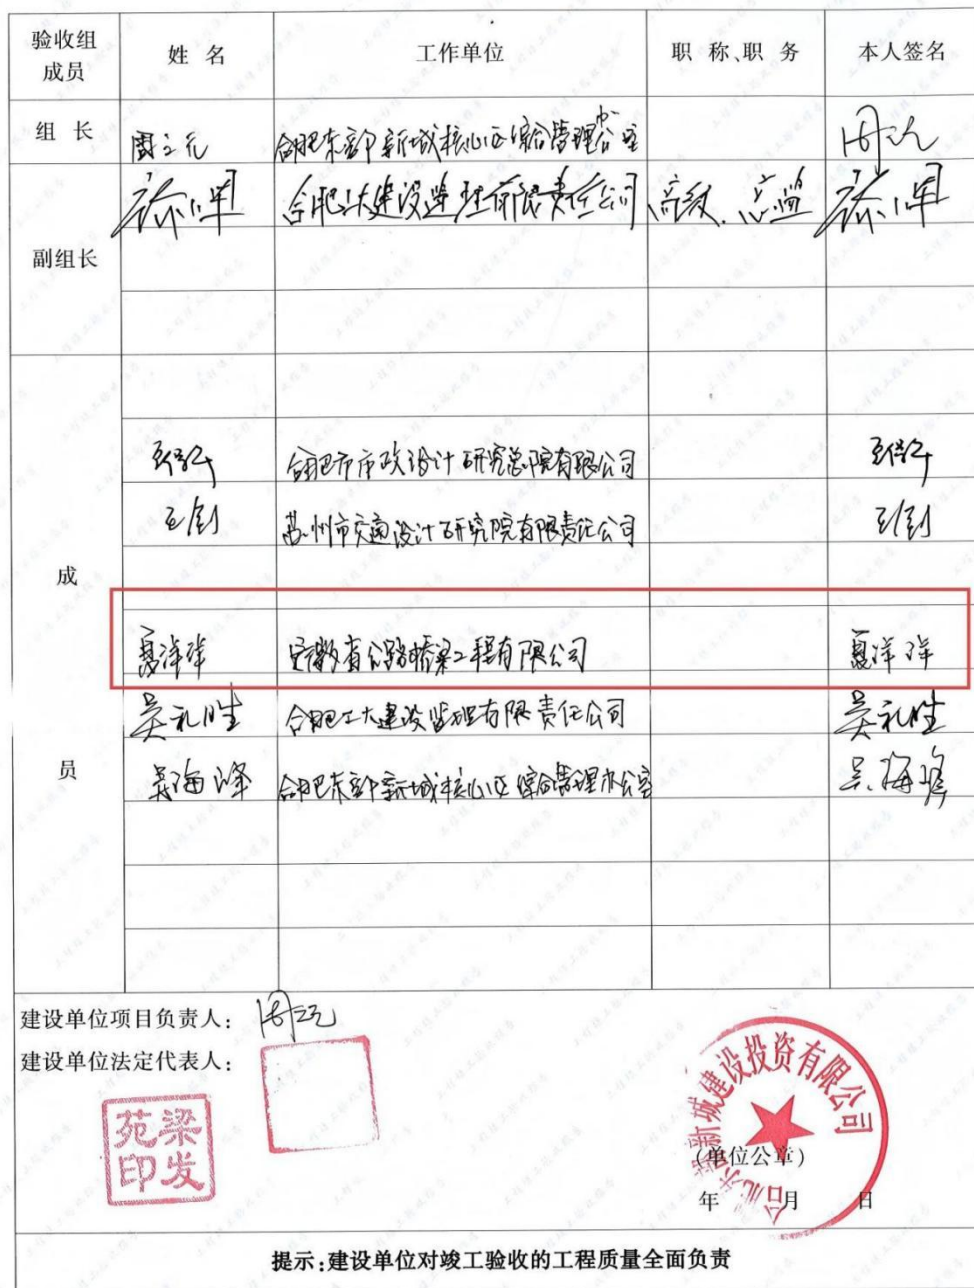 验收组成员 姓 名 工作单位 职 称、职 务 本人签名
组 长 周三元 合肥东部新城核心区综合管理办公室
副组长 合肥工大建设监理有限责任公司 高级、总监
合肥市市政设计研究总院有限公司
王剑 苏州市交通设计研究院有限责任公司 王剑
成
夏洋洋 安徽省公路桥梁工程有限公司 夏洋洋
吴礼胜 合肥工大建设监理有限责任公司 吴礼胜
员 吴海峰 合肥东部新城核心区综合管理办公室 吴海峰
建设单位项目负责人:
建设单位法定代表人:
苑梁
印发
新城建设投资有限公司
(单位公章)
年 月 日
提示:建设单位对竣工验收的工程质量全面负责